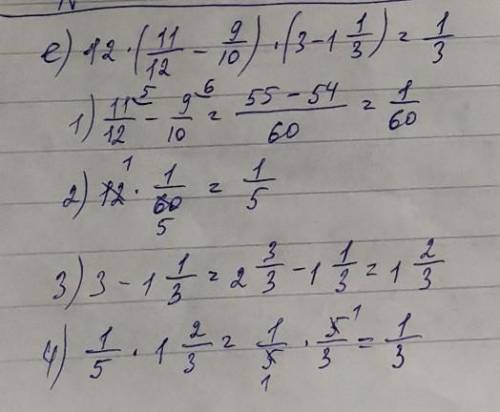 е) 12 · (11/12 − 9/10) · (3 − 1 1/3) = 1/3
1) 11/12 ⁵ − 9/10 ⁶ = (55 − 54)/60 = 1/60
2) 12 ¹ · 1/60 ₅ = 1/5
3) 3 − 1 1/3 = 2 3/3 − 1 1/3 = 1 2/3
4) 1/5 · 1 2/3 = 1/5 ₁ · 5 ¹/3 = 1/3